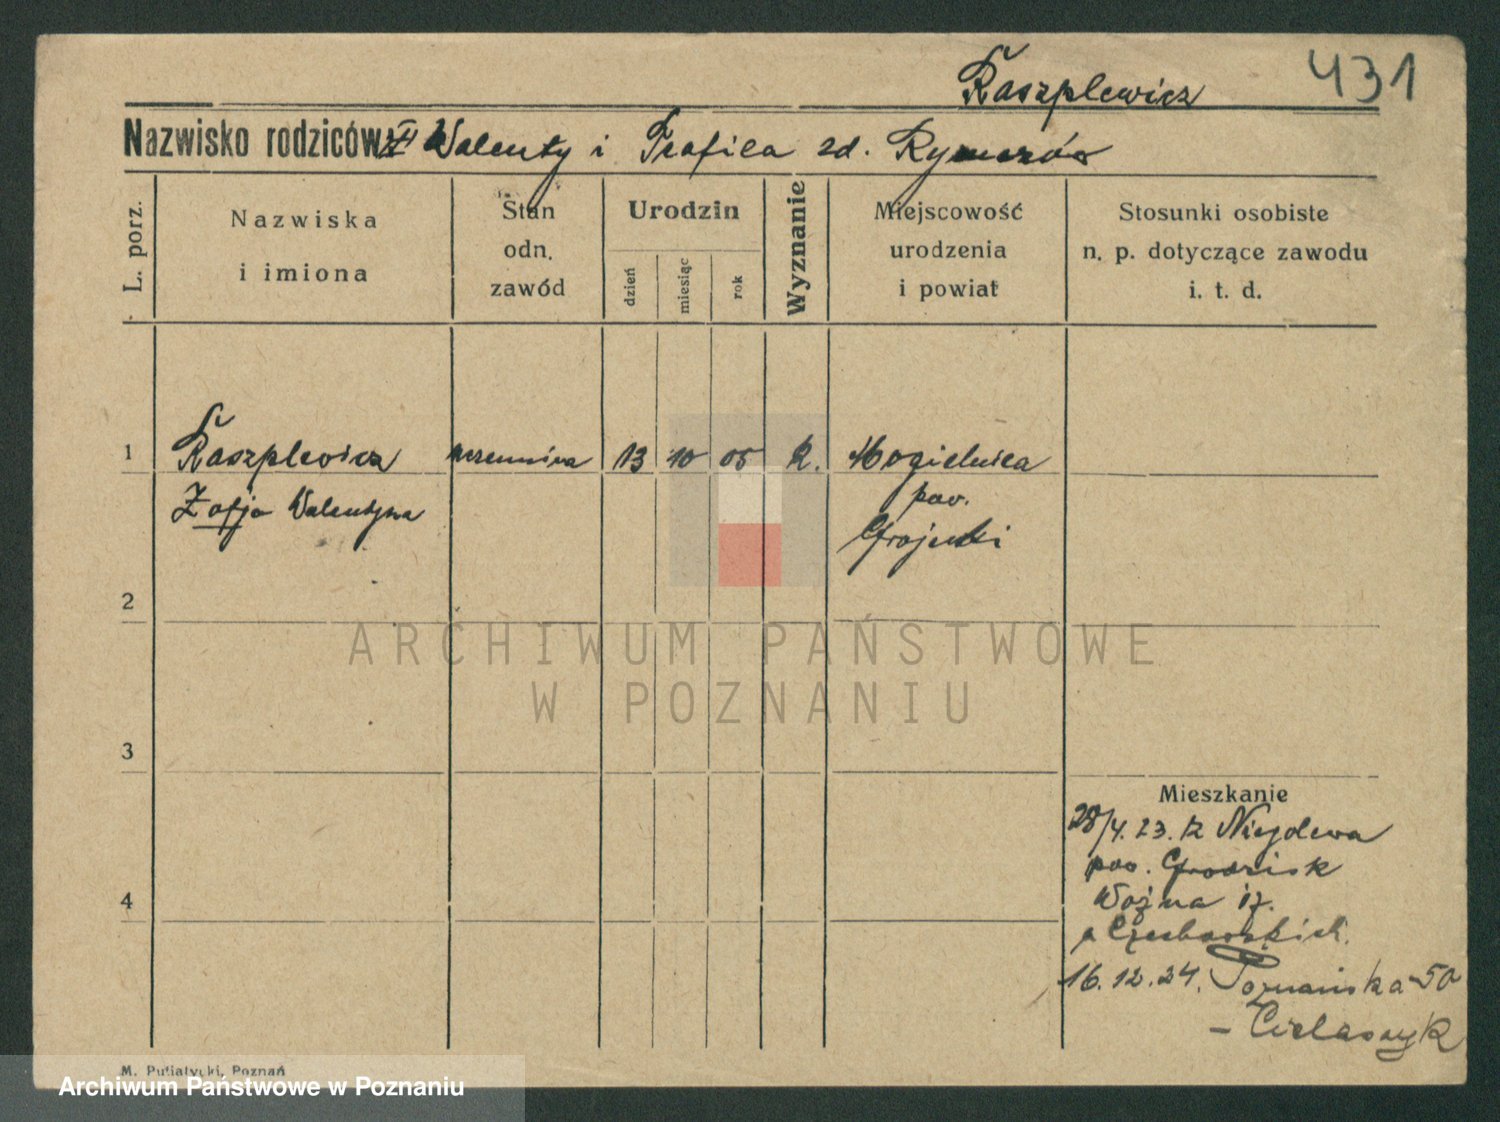 431
Kaszplewicz
Nazwisko rodziców: Walenty i Teofila zd. Rymarów
L. porz.
Nazwiska
i imiona
Stan
odn.
zawód
Urodzin
dzień
miesiąc
rok
Wyznanie
Miejscowość
urodzenia
i powiat
Stosunki osobiste
n. p. dotyczące zawodu
i. t. d.
1
Kaszplewicz
13
10
05
k.
Mogielnica
Zofja Walentyna
pow.
Grojecki
2
3
4
Mieszkanie
28/4. 23. z Niegolewa
pow. Grodzisk
Woźna 17.
16.12.24. Poznańska 50
ARCHIWUM PAŃSTWOWE
W POZNANIU
M. Putiatycki, Poznań
Archiwum Państwowe w Poznaniu